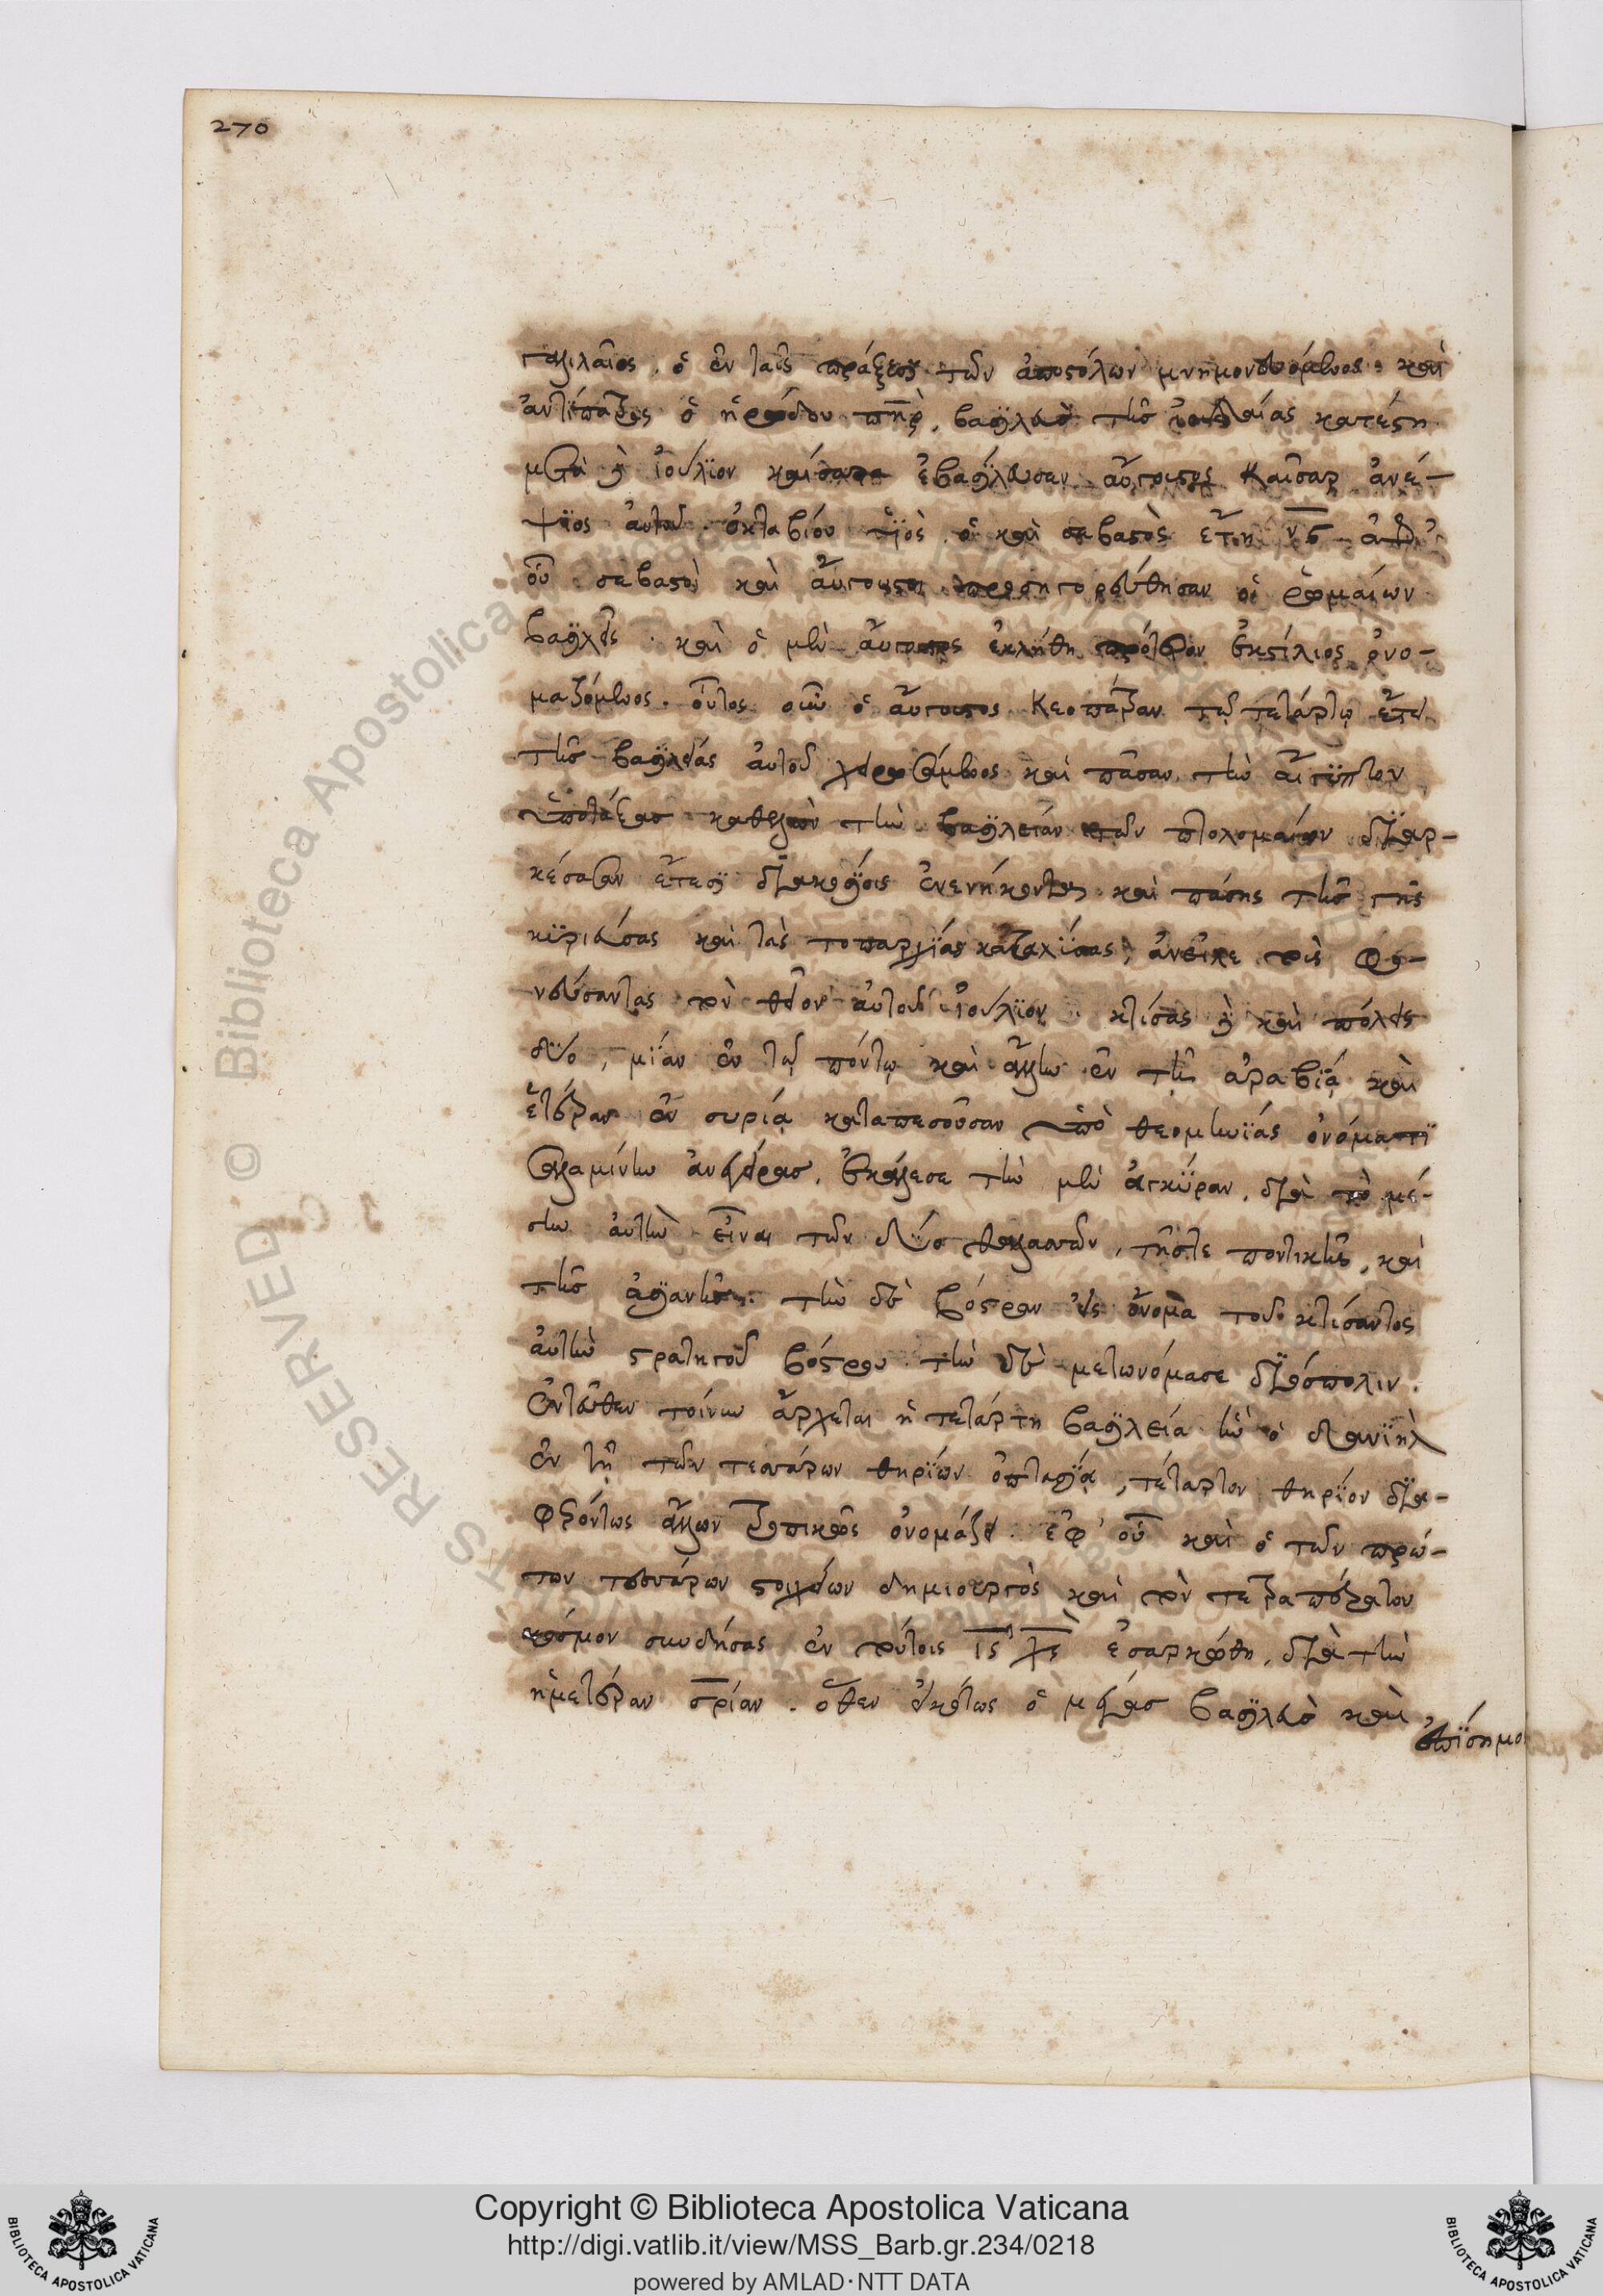 270
γαλιλαῖος. ὁ ἐν ταῖς πράξεσι τῶν ἀποστόλων μνημονευόμενος. καὶ
ἀντίπατρος ὁ ἡρώδου πηρ, βασιλεὺς τῆς ἰουδαίας κατέστη
μετὰ δὲ ἰούλϊον καίσαρα ἐβασίλευσεν αὔγουστος καῖσαρ ἀνέ-
ψϊος αὐτοῦ ὀκταβίου ϋἱὸς. ὁ καὶ σεβαστὸς ἔτη νς ἀφ'
οὗ σεβαστοὶ καὶ αὔγουστοι προσηγορεύθησαν οἱ ῥωμαίων
βασιλεῖς. καὶ ὁ μὲν αὔγουστος ἐκλήθη πρότερον ὀνο-
μαζόμενος. οὗτος οὖν ὁ αὔγουστος κεοπάτραν τῷ τετάρτῳ ἔτει
τῆς βασιλείας αὐτοῦ χειρωσάμενος καὶ πᾶσαν τὴν αἴγϋπτον
ὑποτάξας καθεῖλεν τὴν βασιλείαν τῶν πτολομαίων διαρ-
κέσασαν ἔτεσι διακοσίοις ἐνενήκοντα. καὶ πάσης τῆς γῆς
κϋριεύσας καὶ τὰς τοπαρχίας καταλύσας, ἀνεῖλε τοὺς φο-
νεύσαντας τὸν θεῖον αὐτοῦ ἰούλϊον. κτίσας δὲ καὶ πόλεις
δύο, μίαν ἐν τῷ πόντῳ καὶ ἄλλην ἐν τῇ ἀραβίᾳ καὶ
ἑτέραν ἐν συρίᾳ καταπεσοῦσαν ὑπὸ θεομηνίας ὀνόματϊ
σαλαμίνην ἀνεγείρας. ἐκάλεσε τὴν μὲν ἀγκϋραν, διὰ τὸ μέ-
σην αὐτὴν εἶναι τῶν δύο θαλασσῶν, τῆς τε ποντικῆς, καὶ
τῆς ἀσιανῆς. τὴν δὲ βόστραν εἰς ὄνομα τοῦ κτίσαντος
αὐτὴν στρατηγοῦ βόστρου. τὴν δὲ μετωνόμασε διόσπολιν.
ἐντεῦθεν τοίνυν ἄρχεται ἡ τετάρτη βασιλεία ἣν ὁ δανϊὴλ
ἐν τῇ τῶν τεσσάρων θηρϊων ὀπτασίᾳ, τέταρτον θηρϊον δια-
φερόντως ἄλλων τροπικῶς ὀνομάζει. ἐφ' οὗ καὶ ὁ τῶν πρώ-
των τεσσάρων στοιχείων δημιουργὸς καὶ τὸν τετραπέρατον
κόσμον συνδήσας ἐν τούτοις ις χς ἐσαρκώθη, διὰ τὴν
ἡμετέραν σρίαν. ὅθεν εἰκότως ὁ μέγας βασιλεὺς καὶ
ἐπϊσημο
Copyright © Biblioteca Apostolica Vaticana
http://digi.vatlib.it/view/MSS_Barb.gr.234/0218
powered by AMLAD·NTT DATA
BIBLIOTECA APOSTOLICA VATICANA
BIBLIOTECA APOSTOLICA VATICANA